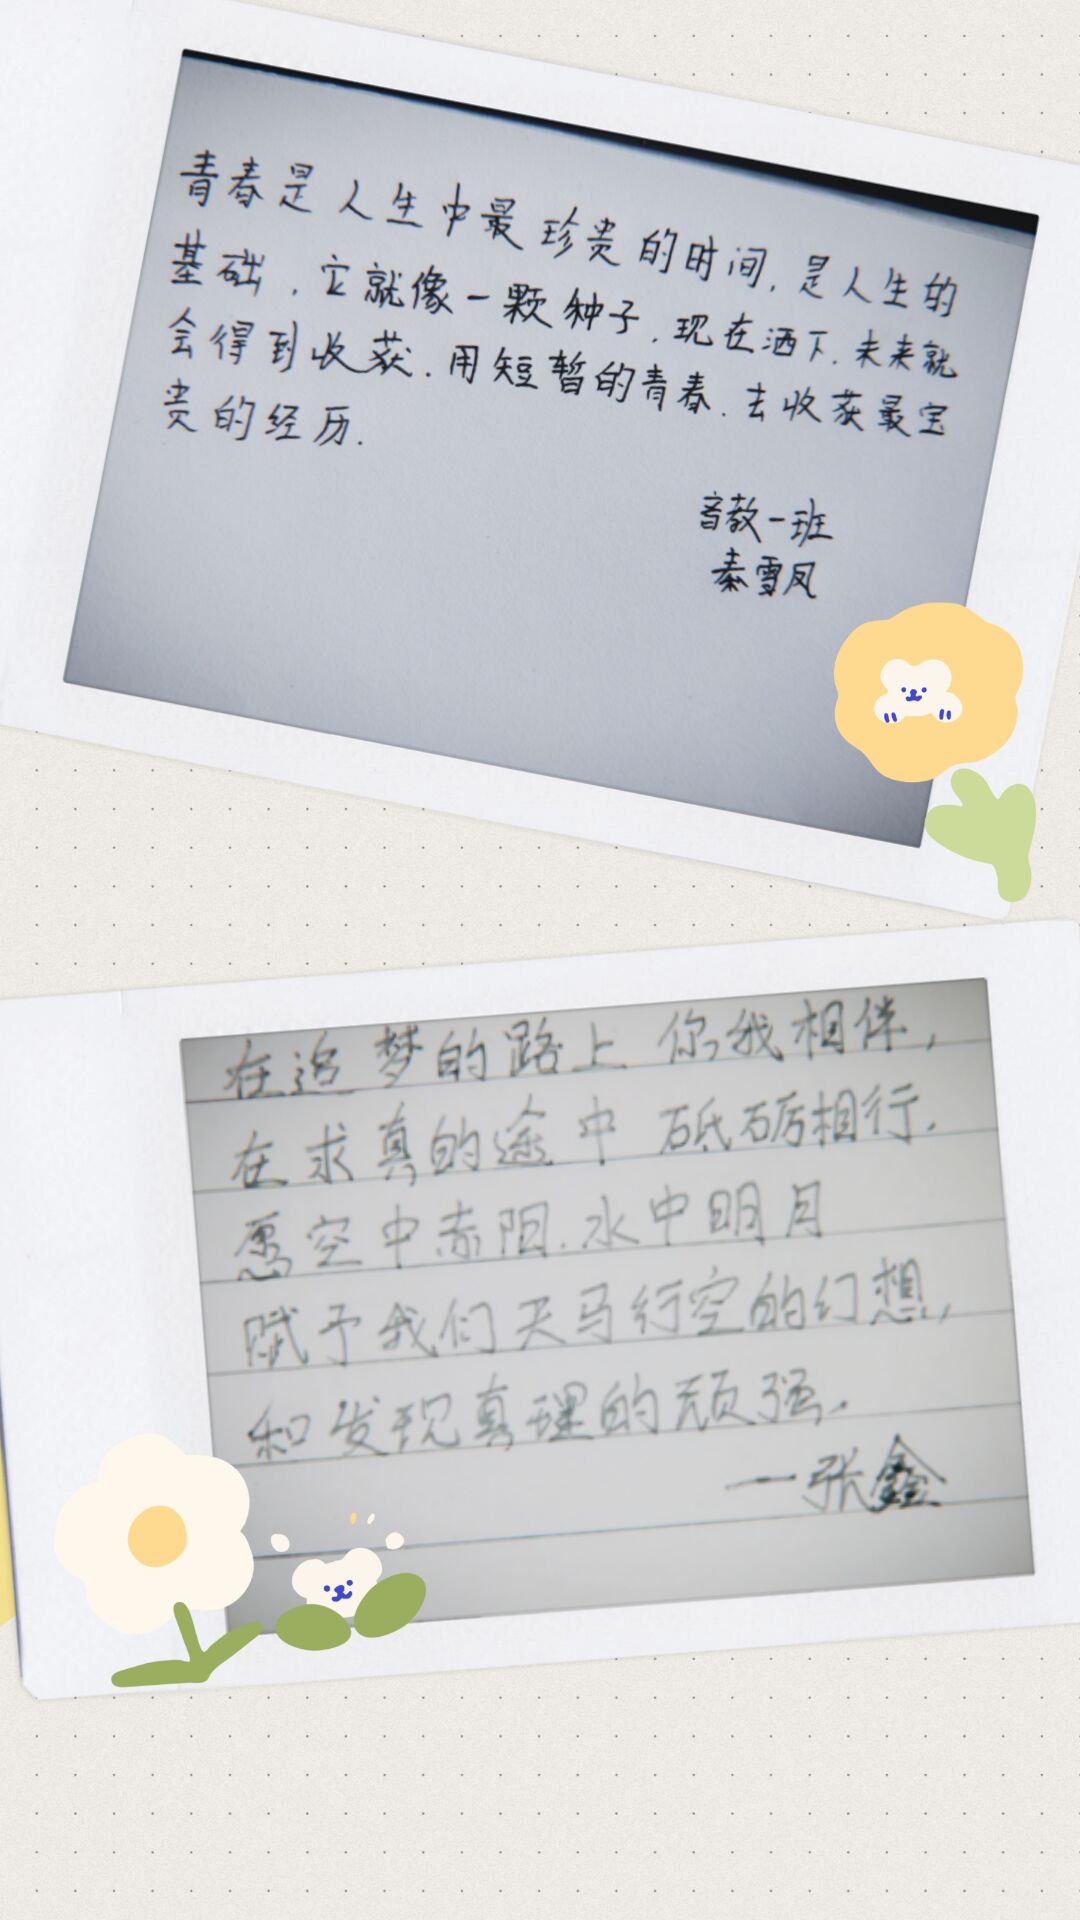 青春是人生中最珍贵的时间,是人生的
基础,它就像一颗种子,现在洒下,未来就
会得到收获.用短暂的青春.去收获最宝
贵的经历.
音教一班
秦雪凤
在追梦的路上 你我相伴,
在求真的途中 砥砺相行.
愿空中赤阳.水中明月
赋予我们天马行空的幻想,
和发现真理的顽强.
一张鑫